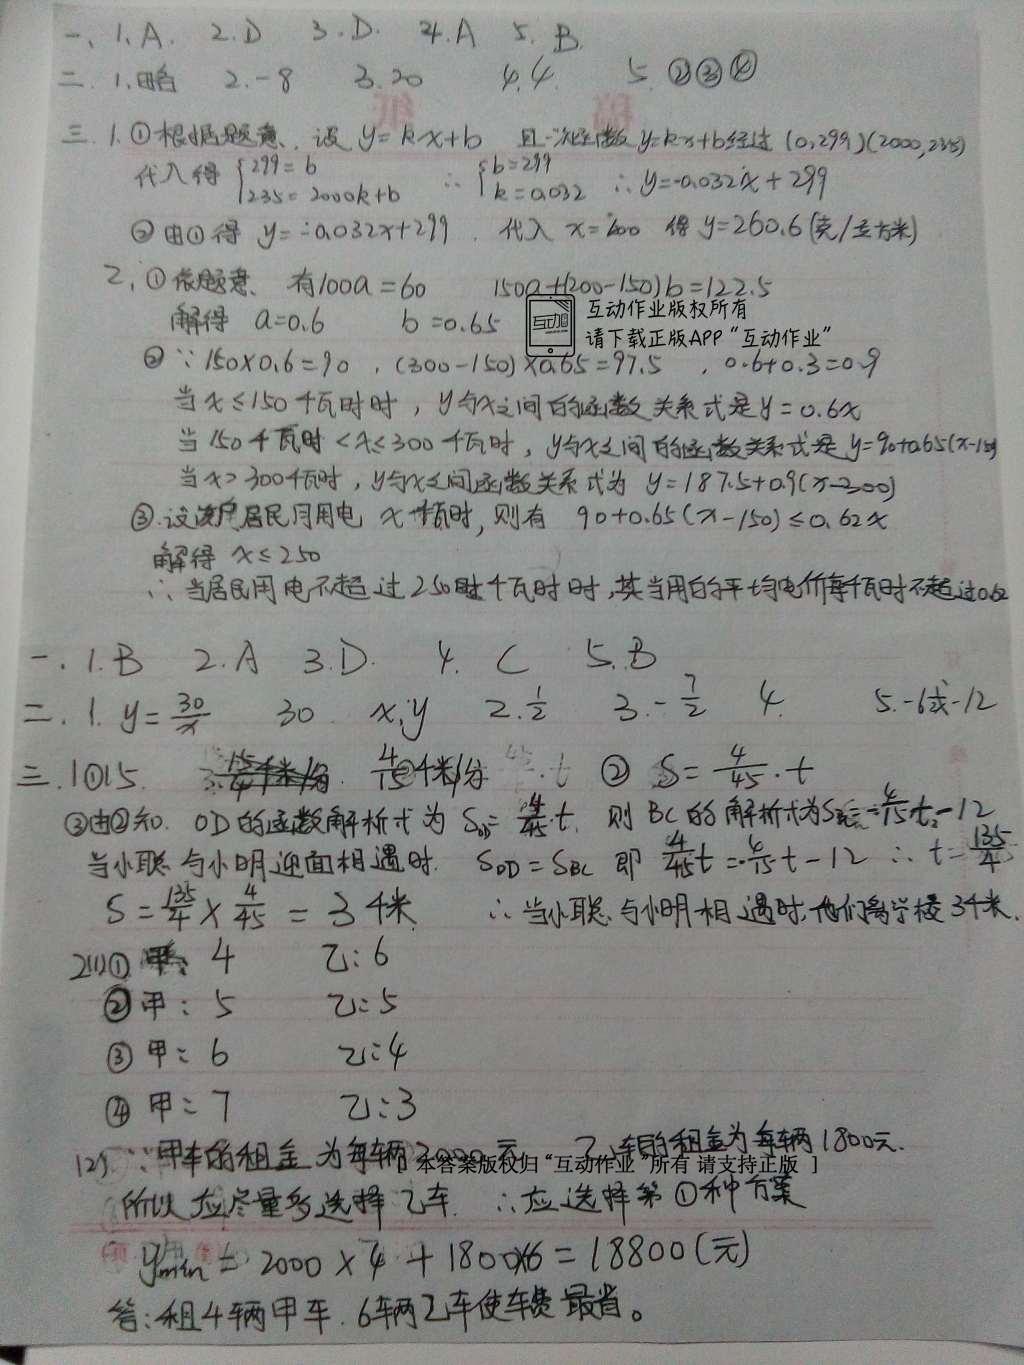 一、1.A. 2.D 3.D. 4.A 5.B.
二. 1.略 2.-8 3.20 4.4. 5.②③④
三. 1.①根据题意、设 y=kx+b 且一次函数 y=kx+b经过 (0,299)(2000,235)
代入得 {299=b 235=2000k+b ∴ {b=299 k=0.032 ∴ y=-0.032x+299
②由①得 y=-0.032x+299. 代入 x=1200 得 y=260.6(克/立方米)
2、①依题意、有100a=60 150a+(200-150)b=122.5
解得 a=0.6 b=0.65
互动作业版权所有
请下载正版APP“互动作业”
② ∵150×0.6=90 , (300-150)×0.65=97.5 , 0.6+0.3=0.9
当 x≤150千瓦时时，y与x之间的函数关系式是y=0.6x
当 150千瓦时<x≤300千瓦时，y与x之间的函数关系式是 y=90+0.65(x-150)
当 x>300千瓦时，y与x之间函数关系式为 y=187.5+0.9(x-300)
③.设该户居民月用电 x千瓦时，则有 90+0.65(x-150)≤0.62x
解得 x≤250
∴当居民用电不超过250千瓦时时，其当月的平均电价每千瓦时不超过0.62
一. 1.B 2.A 3.D. 4. C 5.B
二. 1. y=30/x 30 x,y 2.1/2 3.-7/2 4. 5.-6或-12
三. 1①15. 4/15千米/分 ② S=4/45·t
③由②知. OD的函数解析式为 S_OD=4/45·t. 则BC的解析式为S_BC=4/15t-12
当小聪与小明迎面相遇时. S_OD=S_BC 即 4/45t=-4/15·t-12 ∴ t=135/4
S=135/4×4/45=3千米. ∴当小聪与小明相遇时，他们离学校3千米.
2(1)① 甲: 4 乙: 6
②甲: 5 乙: 5
③甲: 6 乙: 4
④甲: 7 乙: 3
(2) ∵甲车的租金为每辆2000元 乙车的租金为每辆1800元.
[ 本答案版权归“互动作业”所有 请支持正版 ]
所以应尽量多选择乙车. ∴应选择第①种方案
y_min=2000×4+1800×6=18800(元)
答:租4辆甲车.6辆乙车使车费最省。